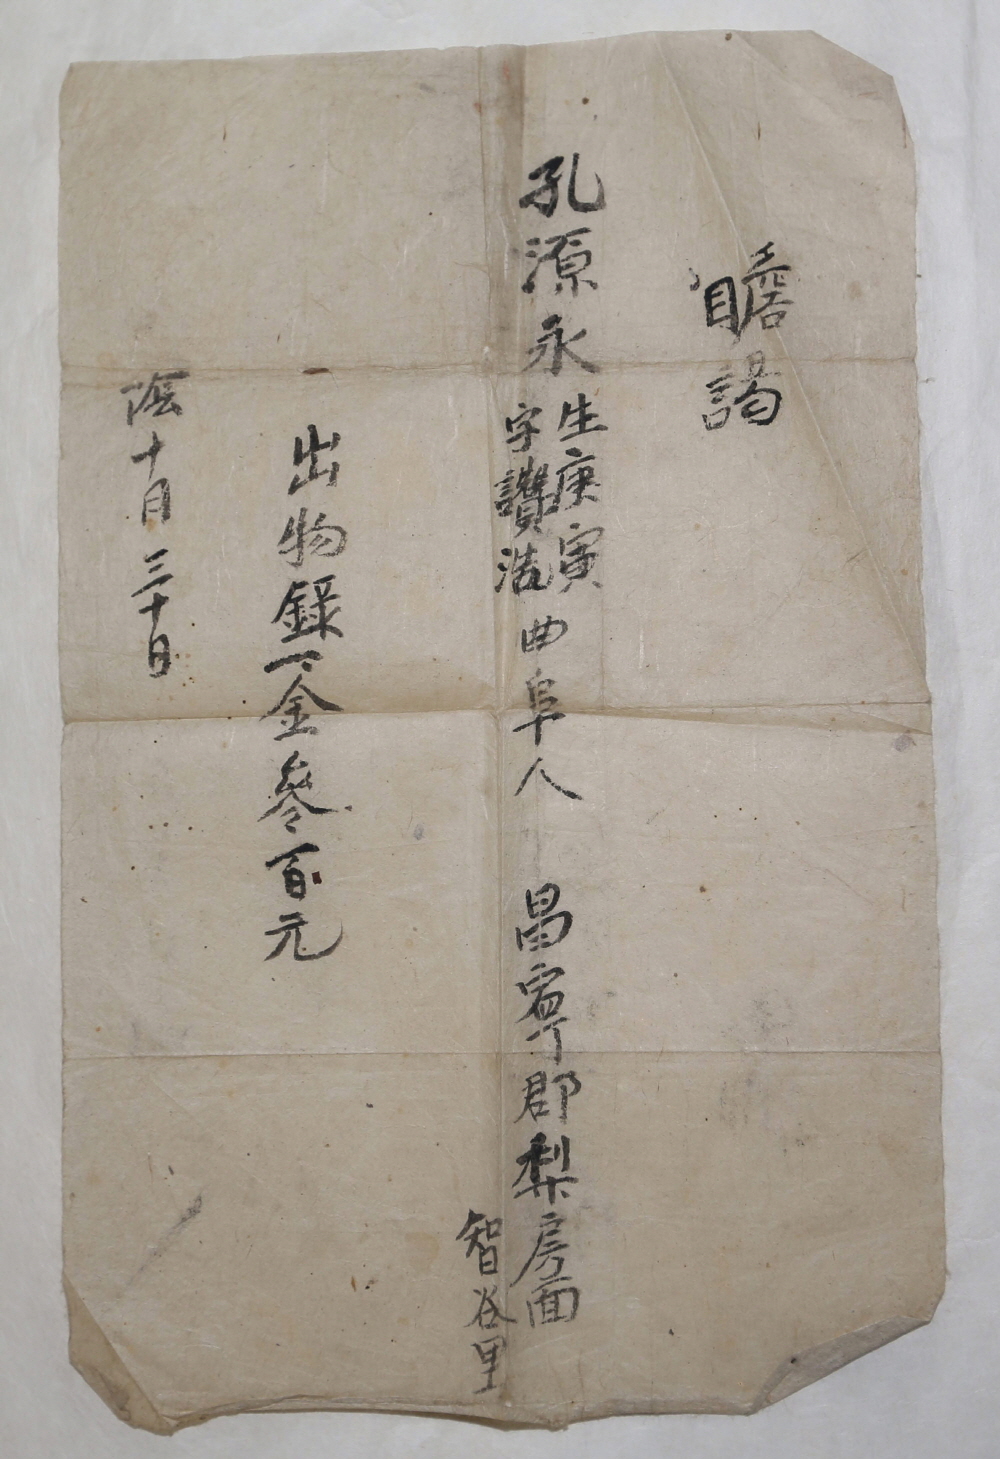 瞻謁
孔源永 生庚寅
字讚浩 曲阜人 昌寧郡梨房面
智谷里
出物錄
一金參百元
陰十月三十日